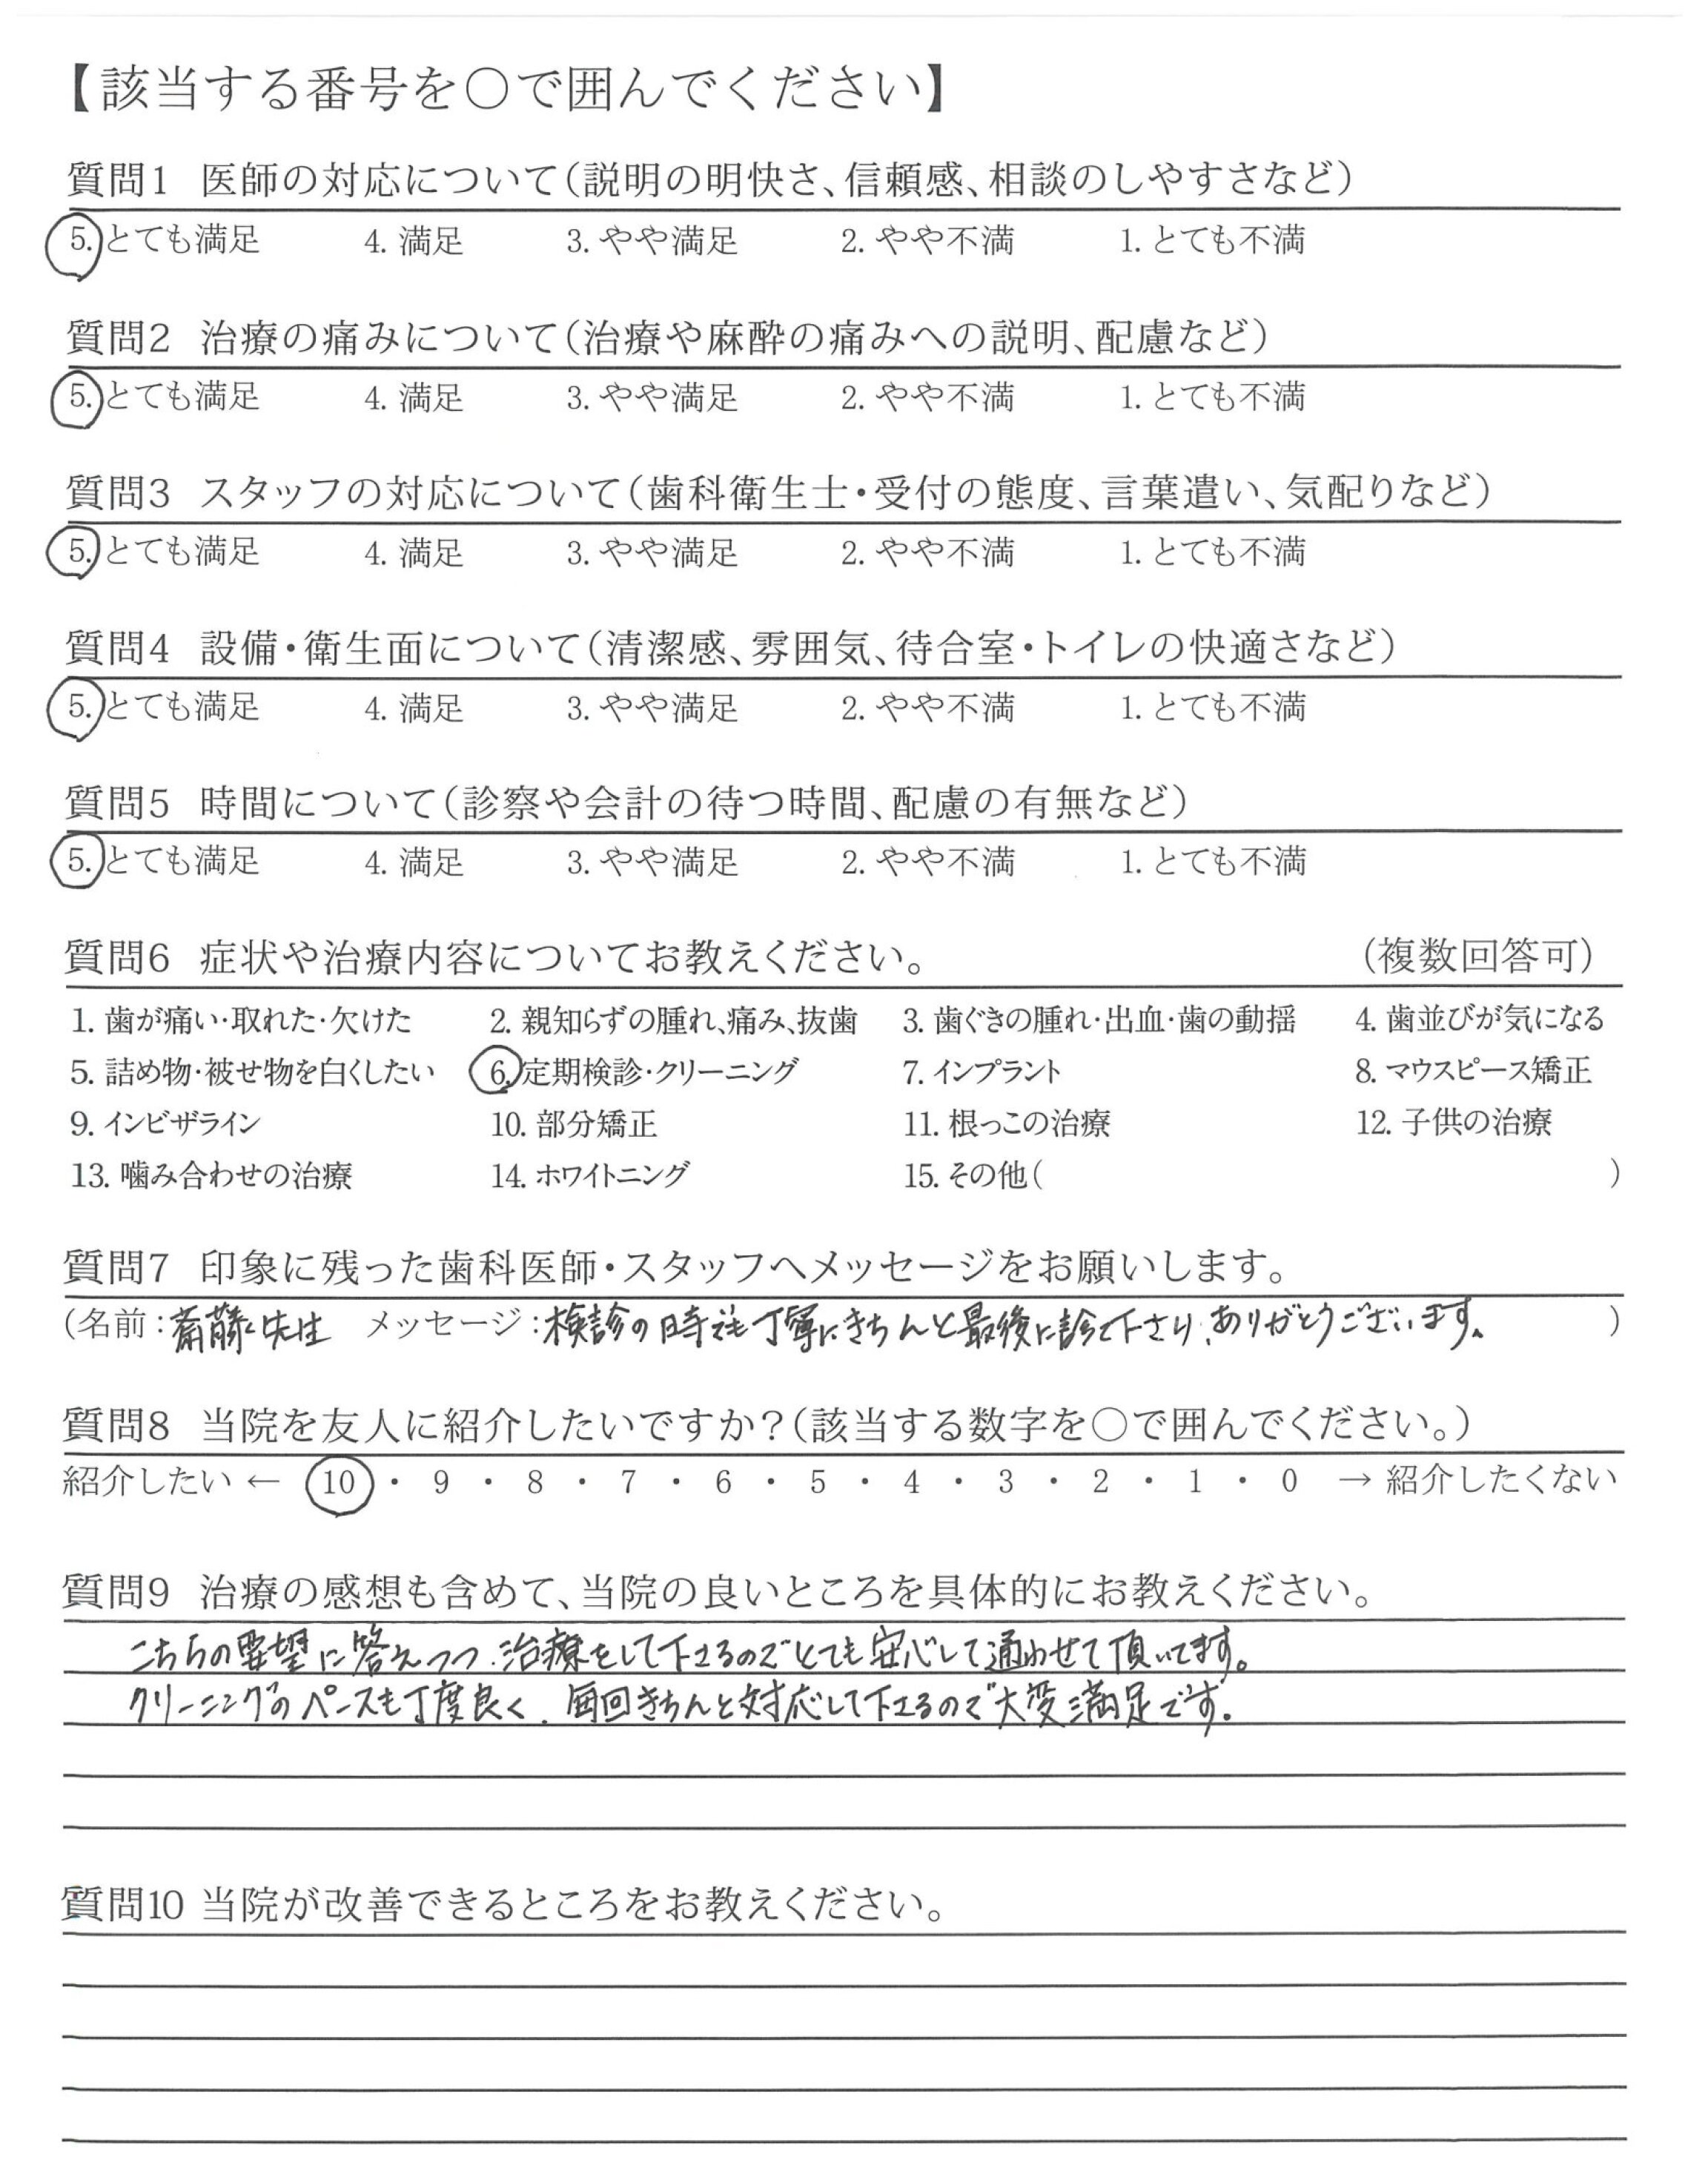 【該当する番号を○で囲んでください】
質問1 医師の対応について（説明の明快さ、信頼感、相談のしやすさなど）
5. とても満足 4. 満足 3. やや満足 2. やや不満 1. とても不満
質問2 治療の痛みについて（治療や麻酔の痛みへの説明、配慮など）
5. とても満足 4. 満足 3. やや満足 2. やや不満 1. とても不満
質問3 スタッフの対応について（歯科衛生士・受付の態度、言葉遣い、気配りなど）
5. とても満足 4. 満足 3. やや満足 2. やや不満 1. とても不満
質問4 設備・衛生面について（清潔感、雰囲気、待合室・トイレの快適さなど）
5. とても満足 4. 満足 3. やや満足 2. やや不満 1. とても不満
質問5 時間について（診察や会計の待つ時間、配慮の有無など）
5. とても満足 4. 満足 3. やや満足 2. やや不満 1. とても不満
質問6 症状や治療内容についてお教えください。 （複数回答可）
1. 歯が痛い・取れた・欠けた 2. 親知らずの腫れ、痛み、抜歯 3. 歯ぐきの腫れ・出血・歯の動揺 4. 歯並びが気になる
5. 詰め物・被せ物を白くしたい 6. 定期検診・クリーニング 7. インプラント 8. マウスピース矯正
9. インビザライン 10. 部分矯正 11. 根っこの治療 12. 子供の治療
13. 噛み合わせの治療 14. ホワイトニング 15. その他（ ）
質問7 印象に残った歯科医師・スタッフへメッセージをお願いします。
（名前：斎藤先生 メッセージ：検診の時でも丁寧にきちんと最後に診て下さり、ありがとうございます。 ）
質問8 当院を友人に紹介したいですか？（該当する数字を○で囲んでください。）
紹介したい ← 10 ・ 9 ・ 8 ・ 7 ・ 6 ・ 5 ・ 4 ・ 3 ・ 2 ・ 1 ・ 0 → 紹介したくない
質問9 治療の感想も含めて、当院の良いところを具体的にお教えください。
こちらの要望に答えつつ、治療をして下さるのでとても安心して通わせて頂いてます。
クリーニングのペースも丁度良く、毎回きちんと対応して下さるので大変満足です。
質問10 当院が改善できるところをお教えください。